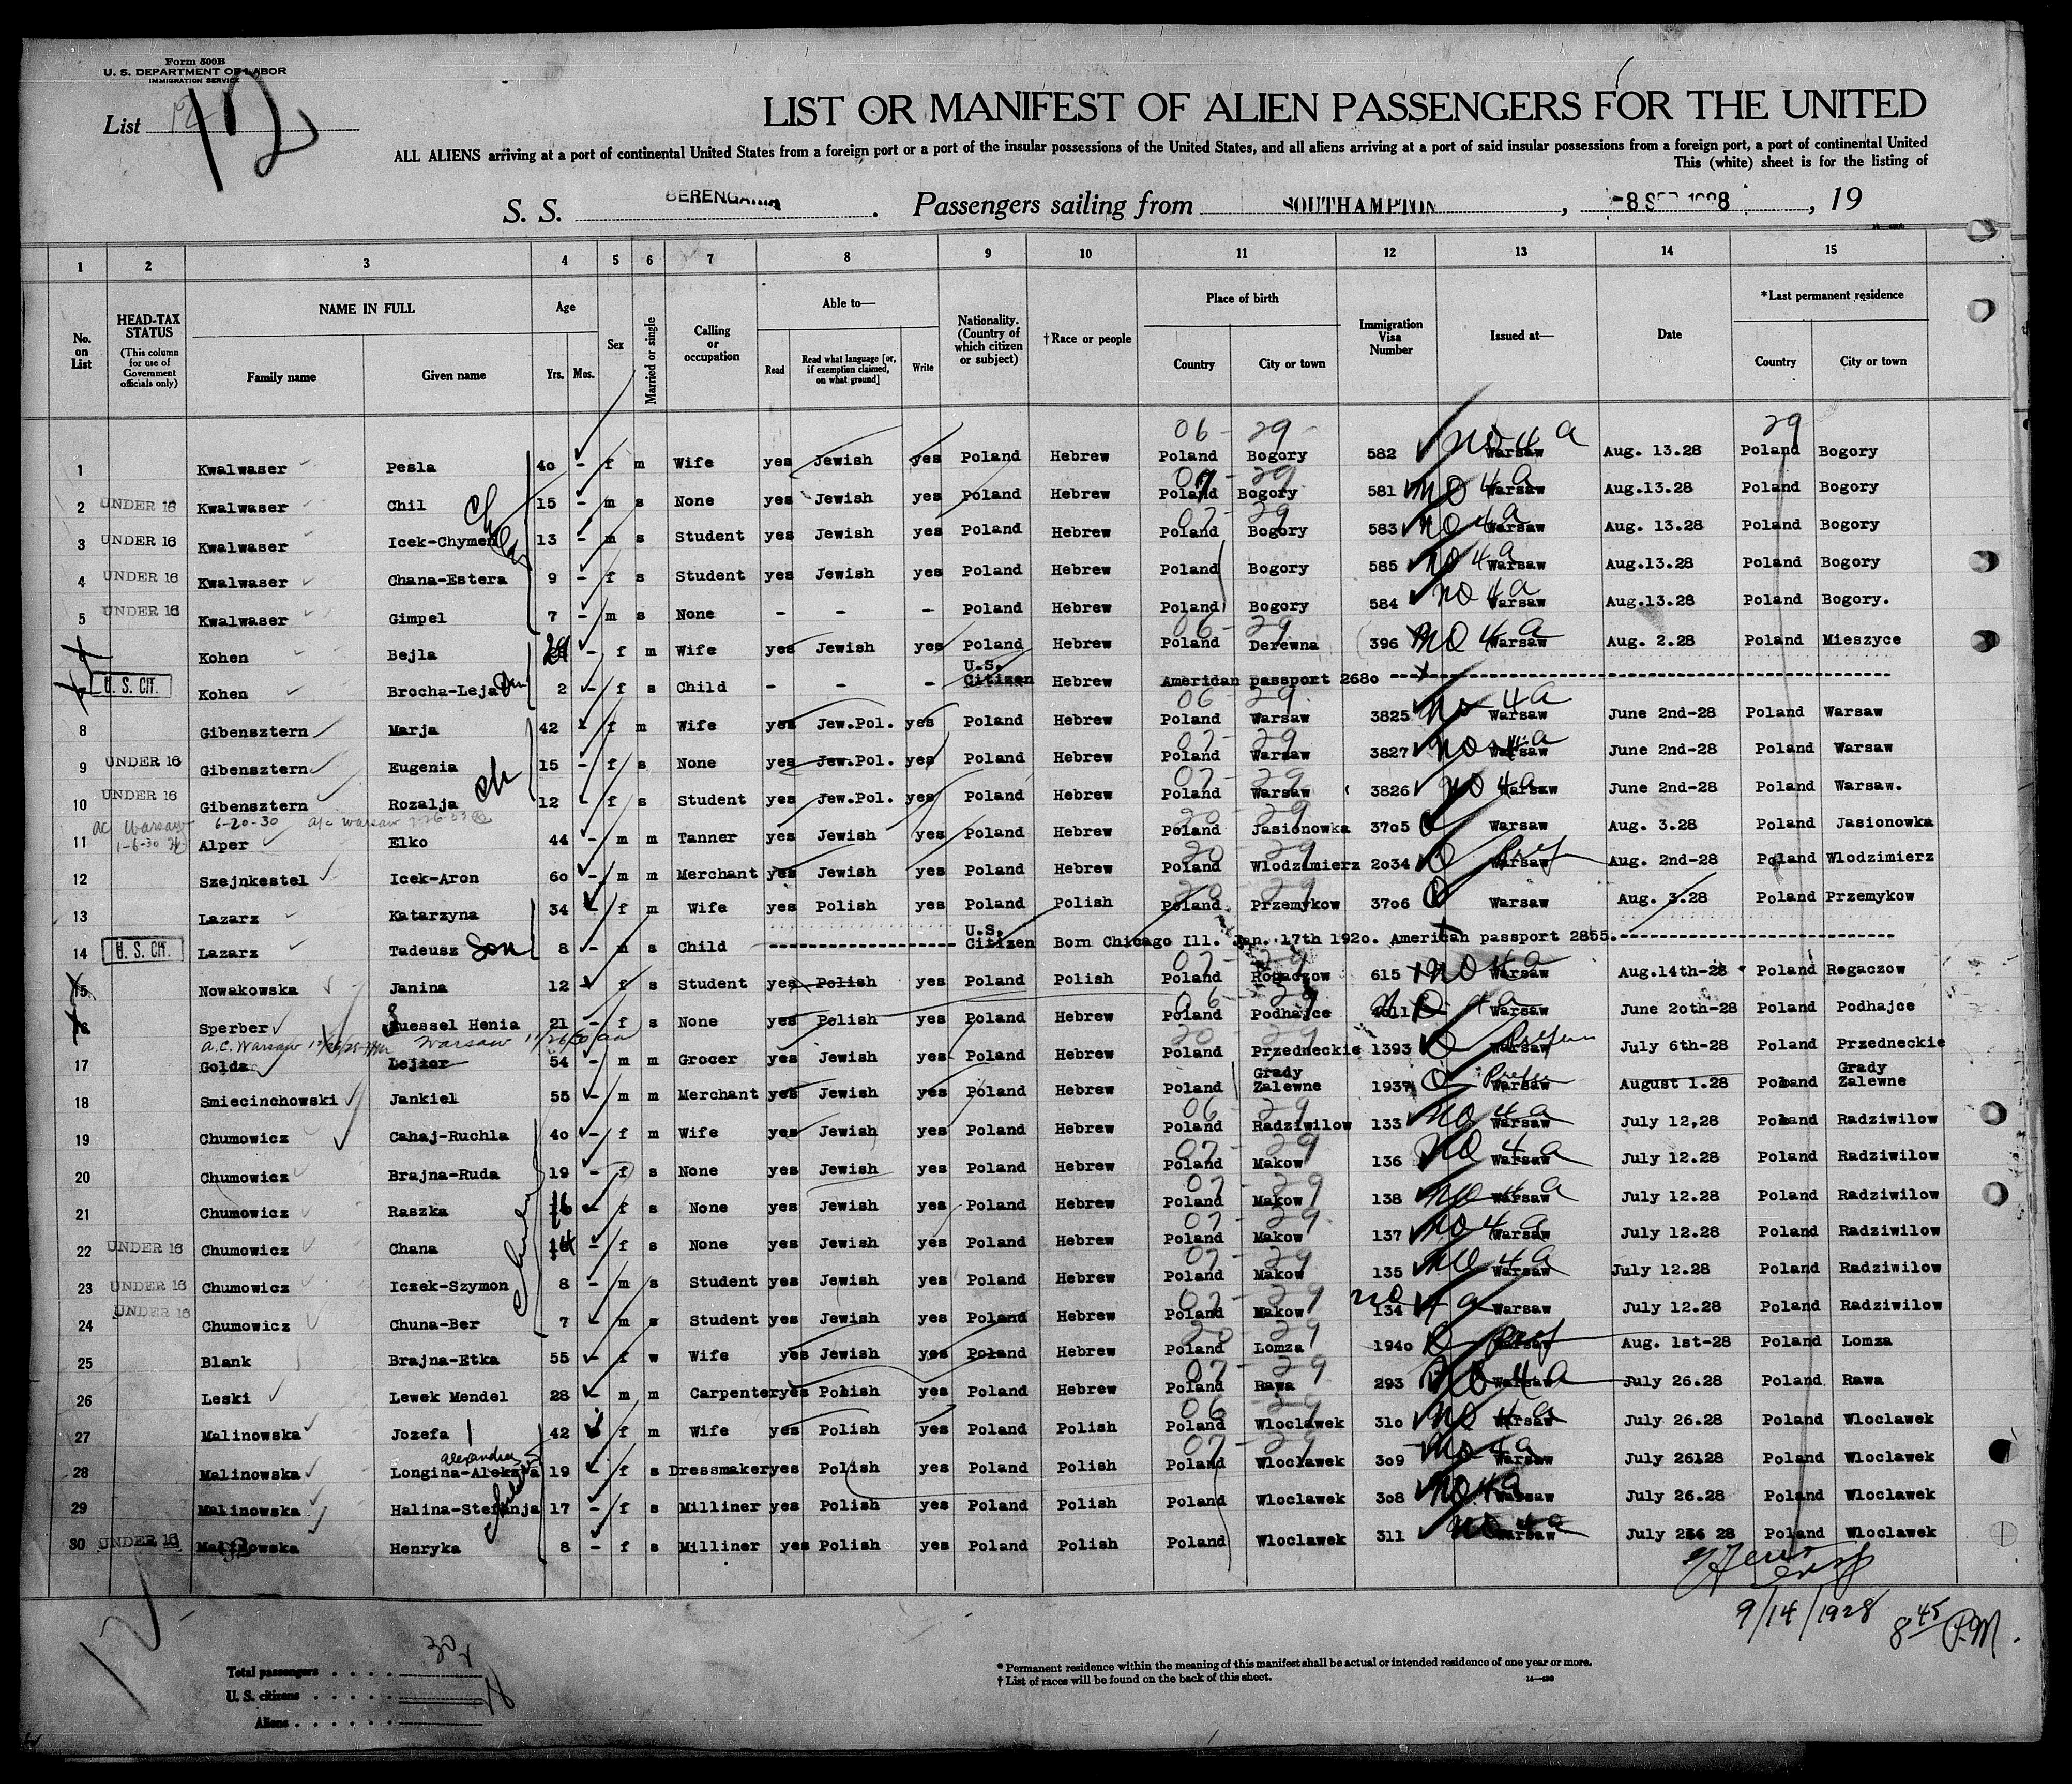 Form 500B
U. S. DEPARTMENT OF LABOR
IMMIGRATION SERVICE
List 12
LIST OR MANIFEST OF ALIEN PASSENGERS FOR THE UNITED
ALL ALIENS arriving at a port of continental United States from a foreign port or a port of the insular possessions of the United States, and all aliens arriving at a port of said insular possessions from a foreign port, a port of continental United
This (white) sheet is for the listing of
S. S. BERENGARIA. Passengers sailing from SOUTHAMPTON, -8 SEP 1928, 19
1 2 3 4 5 6 7 8 9 10 11 12 13 14 15
No. on List
HEAD-TAX STATUS (This column for use of Government officials only)
NAME IN FULL
Family name
Given name
Age
Yrs. Mos.
Sex
Married or single
Calling or occupation
Able to—
Read
Read what language [or, if exemption claimed, on what ground]
Write
Nationality. (Country of which citizen or subject)
†Race or people
Place of birth
Country
City or town
Immigration Visa Number
Issued at—
Date
*Last permanent residence
Country
City or town
06 - 29 29
1 Kwalwaser Pesla 40 - f m Wife yes Jewish yes Poland Hebrew Poland Bogory 582 no 4a Warsaw Aug. 13.28 Poland Bogory
07 - 29
2 UNDER 16 Kwalwaser Chil 15 - m s None yes Jewish yes Poland Hebrew Poland Bogory 581 no 4a Warsaw Aug.13.28 Poland Bogory
07 - 29
3 UNDER 16 Kwalwaser Icek-Chymen 13 - m s Student yes Jewish yes Poland Hebrew Poland Bogory 583 no 4a Warsaw Aug. 13.28 Poland Bogory
4 UNDER 16 Kwalwaser Chana-Estera 9 - f s Student yes Jewish yes Poland Hebrew Poland Bogory 585 no 4a Warsaw Aug.13.28 Poland Bogory
5 UNDER 16 Kwalwaser Gimpel 7 - m s None - - - Poland Hebrew Poland Bogory 584 no 4a Warsaw Aug.13.28 Poland Bogory.
06 - 29
Kohen Bejla - f m Wife yes Jewish yes Poland Hebrew Poland Derewna 396 no 4a Warsaw Aug. 2.28 Poland Mieszyce
U. S. CIT. Kohen Brocha-Leja 2 - f s Child - - - U.S. Citizen Hebrew Ameridan passport 2680
06 - 29
8 Gibensztern Marja 42 - f m Wife yes Jew.Pol. yes Poland Hebrew Poland Warsaw 3825 no 4a Warsaw June 2nd-28 Poland Warsaw
07 - 29
9 UNDER 16 Gibensztern Eugenia ch 15 - f s None yes Jew.Pol. yes Poland Hebrew Poland Warsaw 3827 no 4a Warsaw June 2nd-28 Poland Warsaw
07 - 29
10 UNDER 16 Gibensztern Rozalja 12 - f s Student yes Jew.Pol. yes Poland Hebrew Poland Warsaw 3826 no 4a Warsaw June 2nd-28 Poland Warsaw.
ac Warsaw 6-20-30 a/c Warsaw
20 - 29
11 1-6-30 Alper Elko 44 - m m Tanner yes Jewish yes Poland Hebrew Poland Jasionowka 3705 Warsaw Aug. 3.28 Poland Jasionowka
20 29
12 Szejnkestel Icek-Aron 60 - m m Merchant yes Jewish yes Poland Hebrew Poland Wlodzimierz 2034 Pref Warsaw Aug. 2nd-28 Poland Wlodzimierz
20 - 29
13 Lazarz Katarzyna 34 - f m Wife yes Polish yes Poland Polish Poland Przemykow 3706 Warsaw Aug. 3.28 Poland Przemykow
14 U. S. CIT. Lazarz Tadeusz Son 8 - m s Child U.S. Citizen Born Chicago Ill. Jan. 17th 1920. American passport 2855.
07 - 29
15 Nowakowska Janina 12 f s Student yes Polish yes Poland Polish Poland Rogaczow 615 no 4a Warsaw Aug.14th-28 Poland Rogaczow
06 - 29
16 Sperber Suessel Henia 21 - f s None yes Polish yes Poland Hebrew Poland Podhajce 4611 4a Warsaw June 20th-28 Poland Podhajce
A.C. Warsaw Warsaw 11/26/30
20 - 29
17 Golda Lejzor 54 - m m Grocer yes Jewish yes Poland Hebrew Poland Przedneckie 1393 Warsaw July 6th-28 Poland Przedneckie
18 Smiecinchowski Jankiel 55 - m m Merchant yes Jewish yes Poland Hebrew Poland Grady Zalewne 1937 Warsaw August 1.28 Poland Grady Zalewne
06 - 29
19 Chumowicz Cahaj-Ruchla 40 - f m Wife yes Jewish yes Poland Hebrew Poland Radziwilow 133 no 4a Warsaw July 12,28 Poland Radziwilow
07 - 29
20 Chumowicz Brajna-Ruda 19 - f s None yes Jewish yes Poland Hebrew Poland Makow 136 no 4a Warsaw July 12.28 Poland Radziwilow
07 - 29
21 Chumowicz Raszka 16 - f s None yes Jewish yes Poland Hebrew Poland Makow 138 no 4a Warsaw July 12.28 Poland Radziwilow
07 - 29
22 UNDER 16 Chumowicz Chana 14 - f s None yes Jewish yes Poland Hebrew Poland Makow 137 no 4a Warsaw July 12.28 Poland Radziwilow
07 - 29
23 UNDER 16 Chumowicz Iczek-Szymon 8 - m s Student yes Jewish yes Poland Hebrew Poland Makow 135 no 4a Warsaw July 12.28 Poland Radziwilow
07 - 29
24 UNDER 16 Chumowicz Chuna-Ber 7 - m s Student yes Jewish yes Poland Hebrew Poland Makow 134 no 4a Warsaw July 12.28 Poland Radziwilow
20 29
25 Blank Brajna-Etka 55 - f w Wife yes Jewish yes Poland Hebrew Poland Lomza 1940 Pref Warsaw Aug. 1st-28 Poland Lomza
07 - 29
26 Leski Lewek Mendel 28 - m m Carpenter yes Polish yes Poland Hebrew Poland Rawa 293 no 4a Warsaw July 26.28 Poland Rawa
06 - 29
27 Malinowska Jozefa 42 f m Wife yes Polish yes Poland Polish Poland Wloclawek 310 no 4a Warsaw July 26.28 Poland Wloclawek
alexandra 07 - 29
28 Malinowska Longina-Aleksva 19 - f s Dressmaker yes Polish yes Poland Polish Poland Wloclawek 309 no 4a Warsaw July 26128 Poland Wloclawek
29 Malinowska Halina-Stefanja 17 - f s Milliner yes Polish yes Poland Polish Poland Wloclawek 308 no 4a Warsaw July 26.28 Poland Wloclawek
30 UNDER 16 Malinowska Henryka 8 - f s Milliner yes Polish yes Poland Polish Poland Wloclawek 311 no 4a Warsaw July 236 28 Poland Wloclawek
9/14/1928 8 45 P.M.
Total passengers 30
U. S. citizens
Aliens
* Permanent residence within the meaning of this manifest shall be actual or intended residence of one year or more.
† List of races will be found on the back of this sheet.